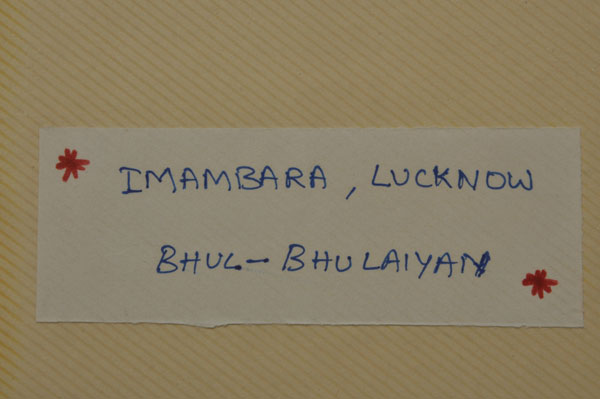 IMAMBARA, LUCKNOW
BHUL-BHULAIYAN